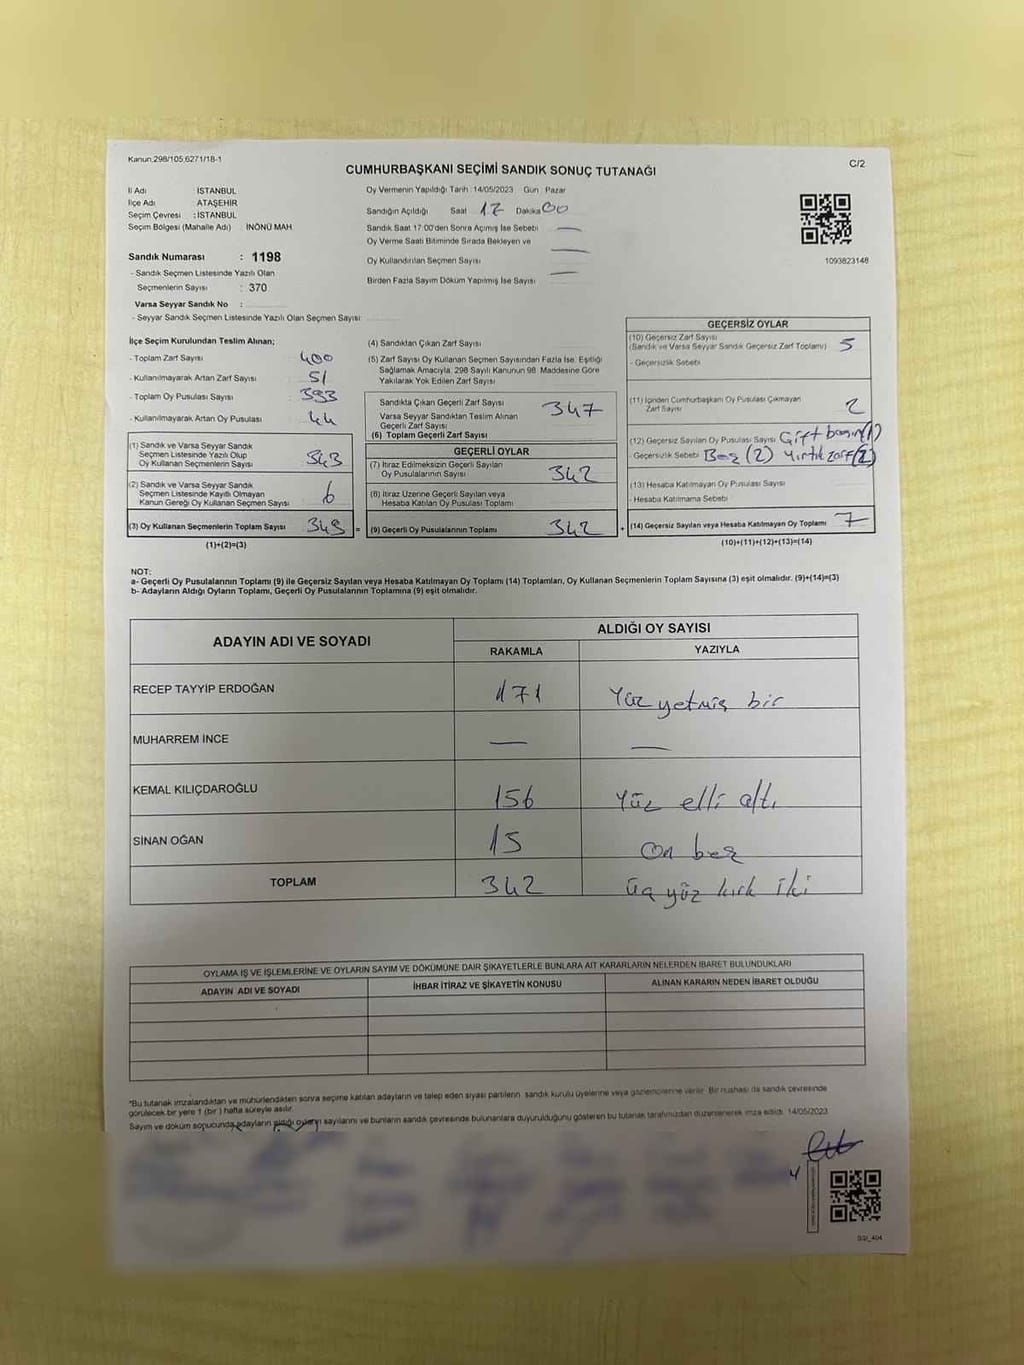 Kanun:298/105,6271/18-1
C/2
CUMHURBAŞKANI SEÇİMİ SANDIK SONUÇ TUTANAĞI
İl Adı : İSTANBUL
İlçe Adı : ATAŞEHİR
Seçim Çevresi : İSTANBUL
Seçim Bölgesi (Mahalle Adı) : İNÖNÜ MAH.
Sandık Numarası : 1198
- Sandık Seçmen Listesinde Yazılı Olan
Seçmenlerin Sayısı : 370
Varsa Seyyar Sandık No :
- Seyyar Sandık Seçmen Listesinde Yazılı Olan Seçmen Sayısı:
Oy Vermenin Yapıldığı Tarih :14/05/2023 Gün : Pazar
Sandığın Açıldığı Saat 17 Dakika 00
Sandık Saat 17:00'den Sonra Açımış İse Sebebi —
Oy Verme Saati Bitiminde Sırada Bekleyen ve
Oy Kullandırılan Seçmen Sayısı —
Birden Fazla Sayım Döküm Yapılmış İse Sayısı —
1093823148
İlçe Seçim Kurulundan Teslim Alınan;
- Toplam Zarf Sayısı 400
- Kullanılmayarak Artan Zarf Sayısı 51
- Toplam Oy Pusulası Sayısı 393
- Kullanılmayarak Artan Oy Pusulası 44
(1) Sandık ve Varsa Seyyar Sandık
Seçmen Listesinde Yazılı Olup
Oy Kullanan Seçmenlerin Sayısı 343
(2) Sandık ve Varsa Seyyar Sandık
Seçmen Listesinde Kayıtlı Olmayan
Kanun Gereği Oy Kullanan Seçmen Sayısı 6
(3) Oy Kullanan Seçmenlerin Toplam Sayısı 349 =
(1)+(2)=(3)
(4) Sandıktan Çıkan Zarf Sayısı
(5) Zarf Sayısı Oy Kullanan Seçmen Sayısından Fazla İse, Eşitliği
Sağlamak Amacıyla, 298 Sayılı Kanunun 98. Maddesine Göre
Yakılarak Yok Edilen Zarf Sayısı
Sandıkta Çıkan Geçerli Zarf Sayısı 347
Varsa Seyyar Sandıktan Teslim Alınan
Geçerli Zarf Sayısı
(6) Toplam Geçerli Zarf Sayısı
GEÇERLİ OYLAR
(7) İtiraz Edilmeksizin Geçerli Sayılan
Oy Pusulalarının Sayısı 342
(8) İtiraz Üzerine Geçerli Sayılan veya
Hesaba Katılan Oy Pusulası Toplamı
(9) Geçerli Oy Pusulalarının Toplamı 342 +
GEÇERSİZ OYLAR
(10) Geçersiz Zarf Sayısı
(Sandık ve Varsa Seyyar Sandık Geçersiz Zarf Toplamı) 5
- Geçersizlik Sebebi
(11) İçinden Cumhurbaşkanı Oy Pusulası Çıkmayan
Zarf Sayısı 2
(12) Geçersiz Sayılan Oy Pusulası Sayısı Çift basım(1)
- Geçersizlik Sebebi Boş (2) Yırtık zarf(2)
(13) Hesaba Katılmayan Oy Pusulası Sayısı
- Hesaba Katılmama Sebebi
(14) Geçersiz Sayılan veya Hesaba Katılmayan Oy Toplamı 7
(10)+(11)+(12)+(13)=(14)
NOT:
a- Geçerli Oy Pusulalarının Toplamı (9) ile Geçersiz Sayılan veya Hesaba Katılmayan Oy Toplamı (14) Toplamları, Oy Kullanan Seçmenlerin Toplam Sayısına (3) eşit olmalıdır. (9)+(14)=(3)
b- Adayların Aldığı Oyların Toplamı, Geçerli Oy Pusulalarının Toplamına (9) eşit olmalıdır.
ADAYIN ADI VE SOYADI
ALDIĞI OY SAYISI
RAKAMLA YAZIYLA
RECEP TAYYİP ERDOĞAN 171 Yüz yetmiş bir
MUHARREM İNCE — —
KEMAL KILIÇDAROĞLU 156 Yüz elli altı
SİNAN OĞAN 15 On beş
TOPLAM 342 üç yüz kırk iki
OYLAMA İŞ VE İŞLEMLERİNE VE OYLARIN SAYIM VE DÖKÜMÜNE DAİR ŞİKAYETLERLE BUNLARA AİT KARARLARIN NELERDEN İBARET BULUNDUKLARI
ADAYIN ADI VE SOYADI İHBAR İTİRAZ VE ŞİKAYETİN KONUSU ALINAN KARARIN NEDEN İBARET OLDUĞU
*Bu tutanak imzalandıktan ve mühürlendikten sonra seçime katılan adayların ve talep eden siyasi partilerin sandık kurulu üyelerine veya gözlemcilerine verilir. Bir nüshası da sandık çevresinde
görülecek bir yere 1 (bir ) hafta süreyle asılır.
Sayım ve döküm sonucunda adayların aldığı oyların sayılarını ve bunların sandık çevresinde bulunanlara duyurulduğunu gösteren bu tutanak tarafımızdan düzenlenerek imza edildi. 14/05/2023